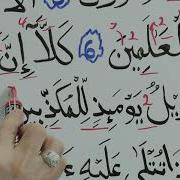 لْعَٰلَمِينَ ٦ كَلَّآ إِنَّ
يْلٌ يَوْمَئِذٍ لِّلْمُكَذِّبِي
ذَا تُتْلَىٰ عَلَيْهِ ءَ